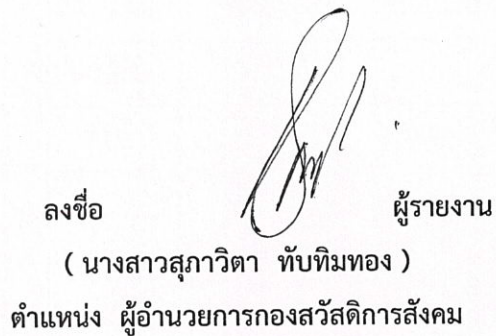 ลงชื่อ ผู้รายงาน
( นางสาวสุภาวิตา ทับทิมทอง )
ตำแหน่ง ผู้อำนวยการกองสวัสดิการสังคม